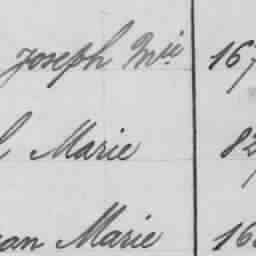 Joseph Mie 167
Marie 82
ean Marie 16